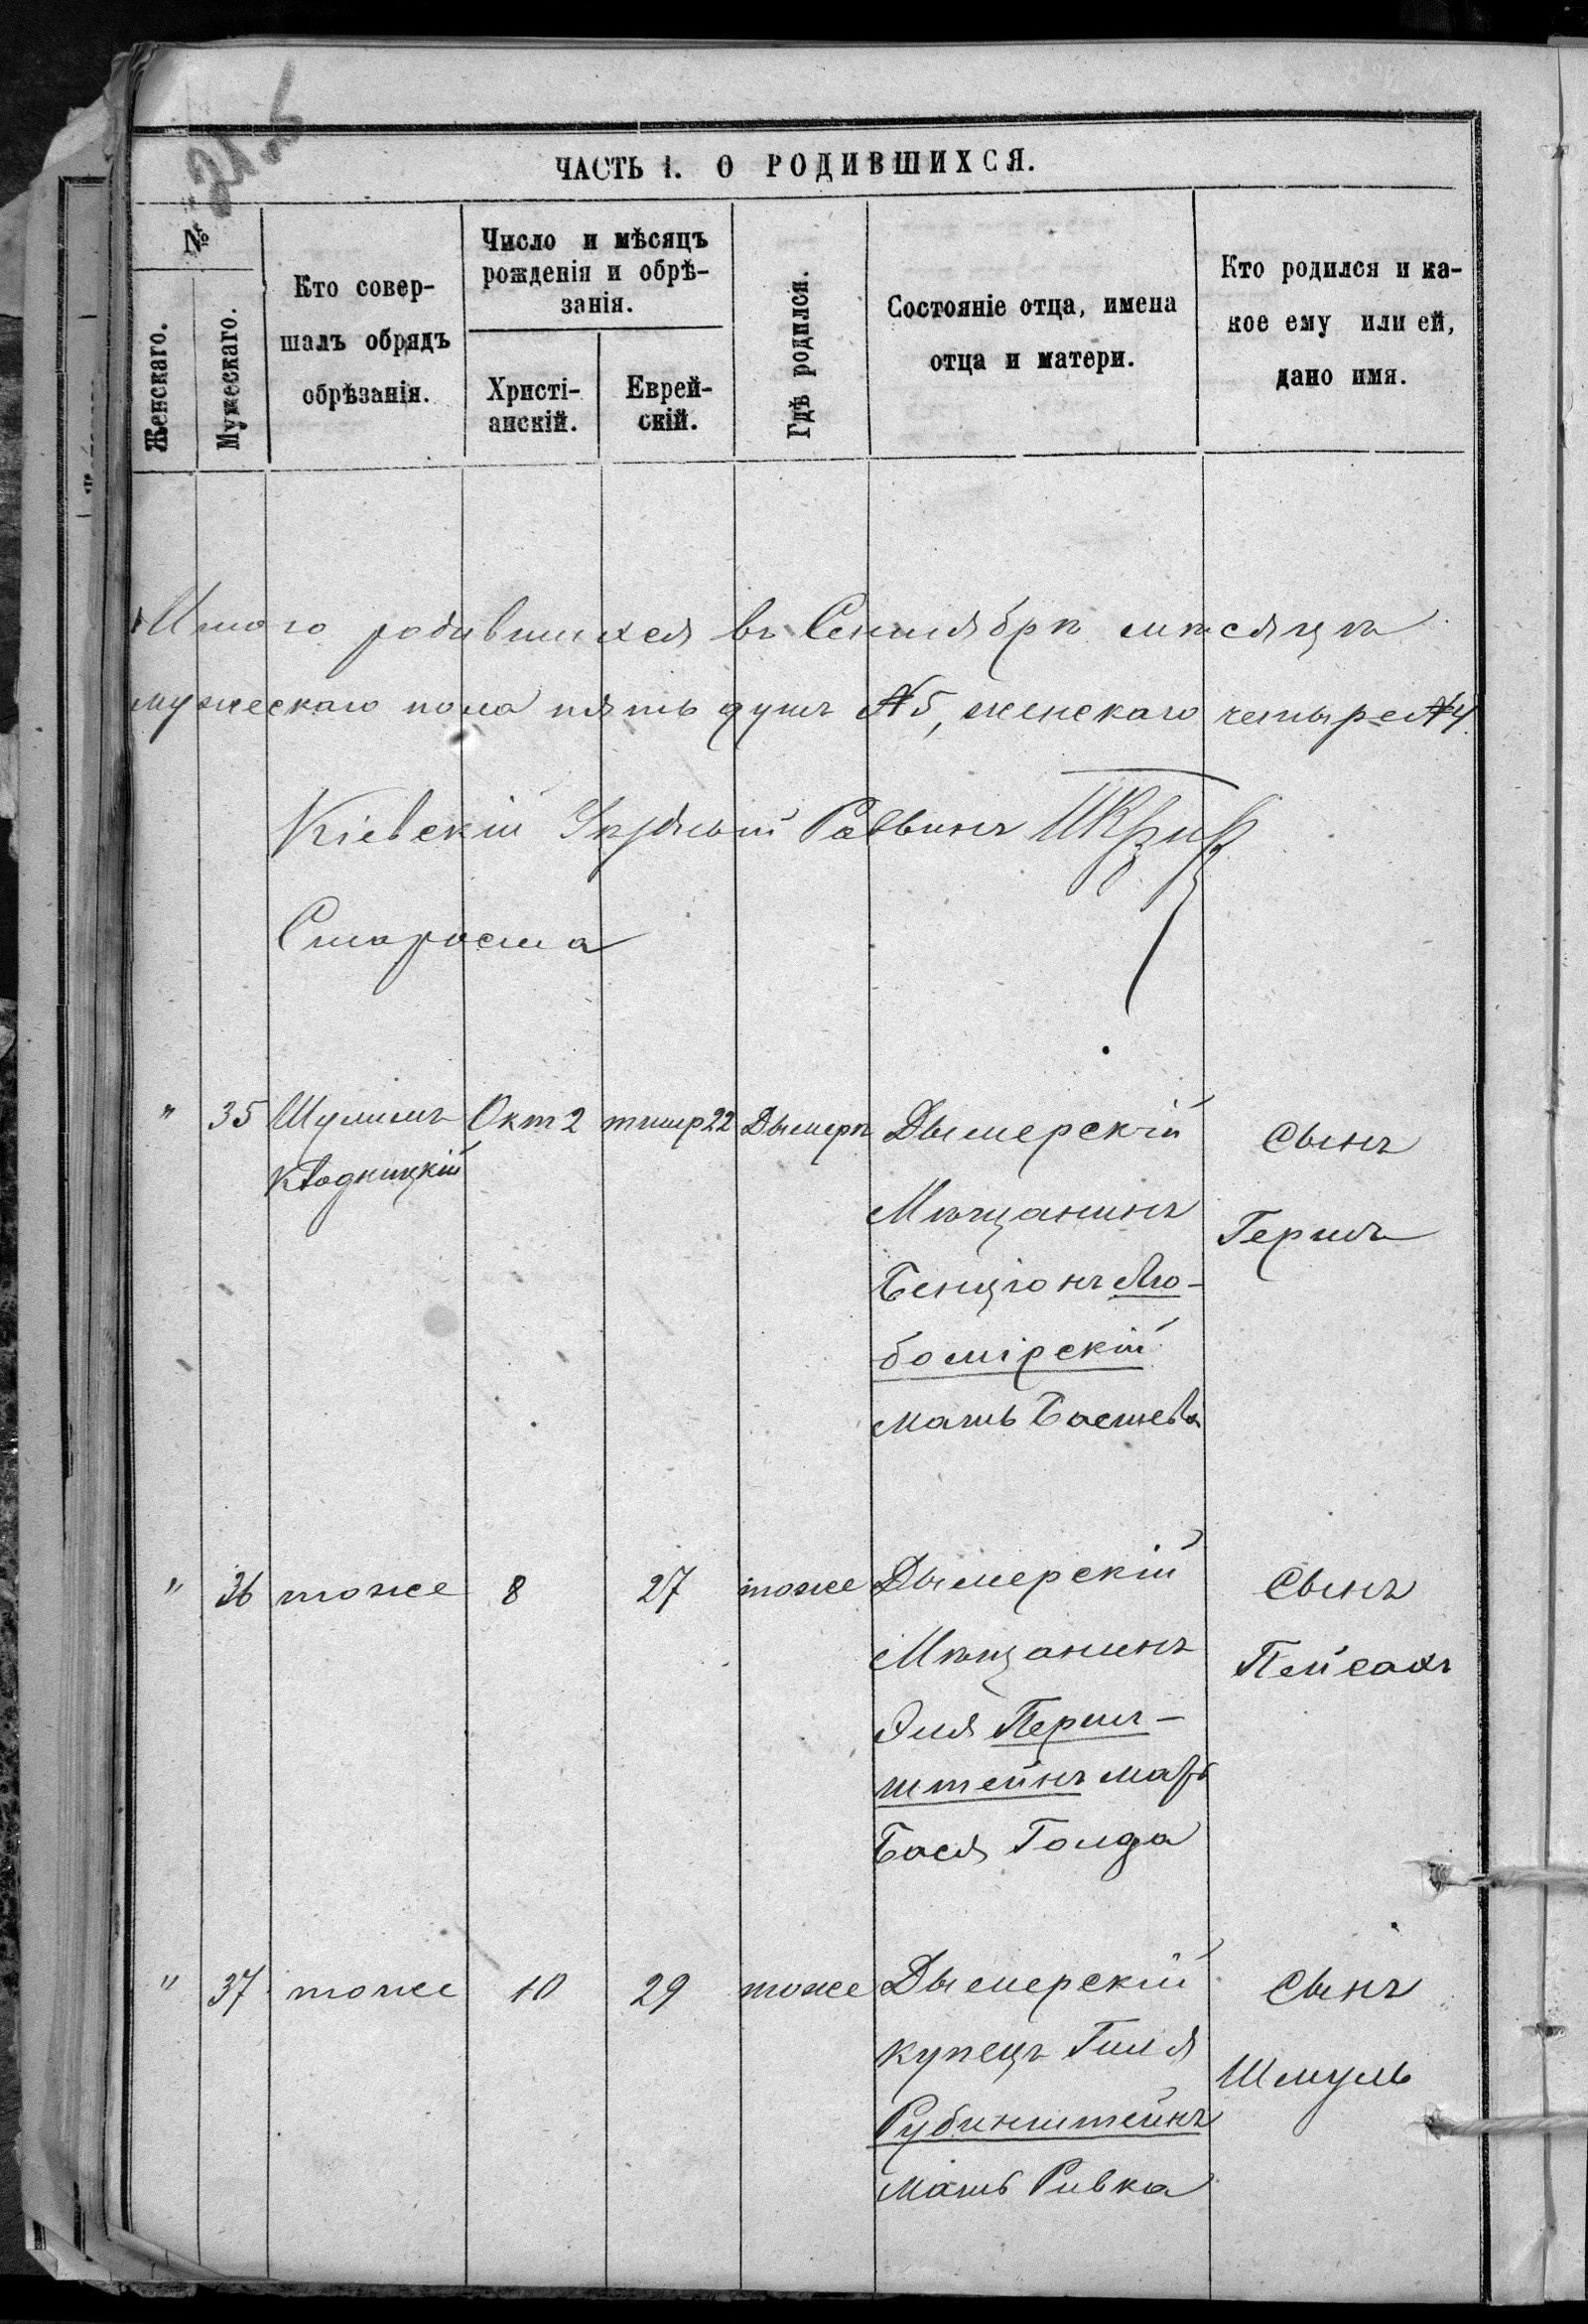 ЧАСТЬ 1. О РОДИВШИХСЯ.
№
Женскаго.
Мужескаго.
Кто совер-
шалъ обрядъ
обрѣзанія.
Число и мѣсяцъ
рожденія и обрѣ-
занія.
Христі-
анскій.
Еврей-
скій.
Гдѣ родился.
Состояніе отца, имена
отца и матери.
Кто родился и ка-
кое ему или ей,
дано имя.
Итого родившихся въ Сентябрѣ мѣсяцѣ
мужескаго пола пять душъ №5, женскаго четыре №4
Кіевскій Уѣздный Раввинъ
Староста
" 35 Шулимъ Окт 2 тишр 22 Дымерѣ Дымерскій Сынъ
Мѣщанинъ Гершъ
Бенціонъ Лю-
бомірскій
мать Басшева
" 36 тоже 8 27 тоже Дымерскій Сынъ
Мѣщанинъ Пейсахъ
Эля Перль-
штейнъ мать
Бася Голда
" 37 тоже 10 29 тоже Дымерскій Сынъ
купецъ Гиля Шмуль
Рубинштейнъ
мать Ривка